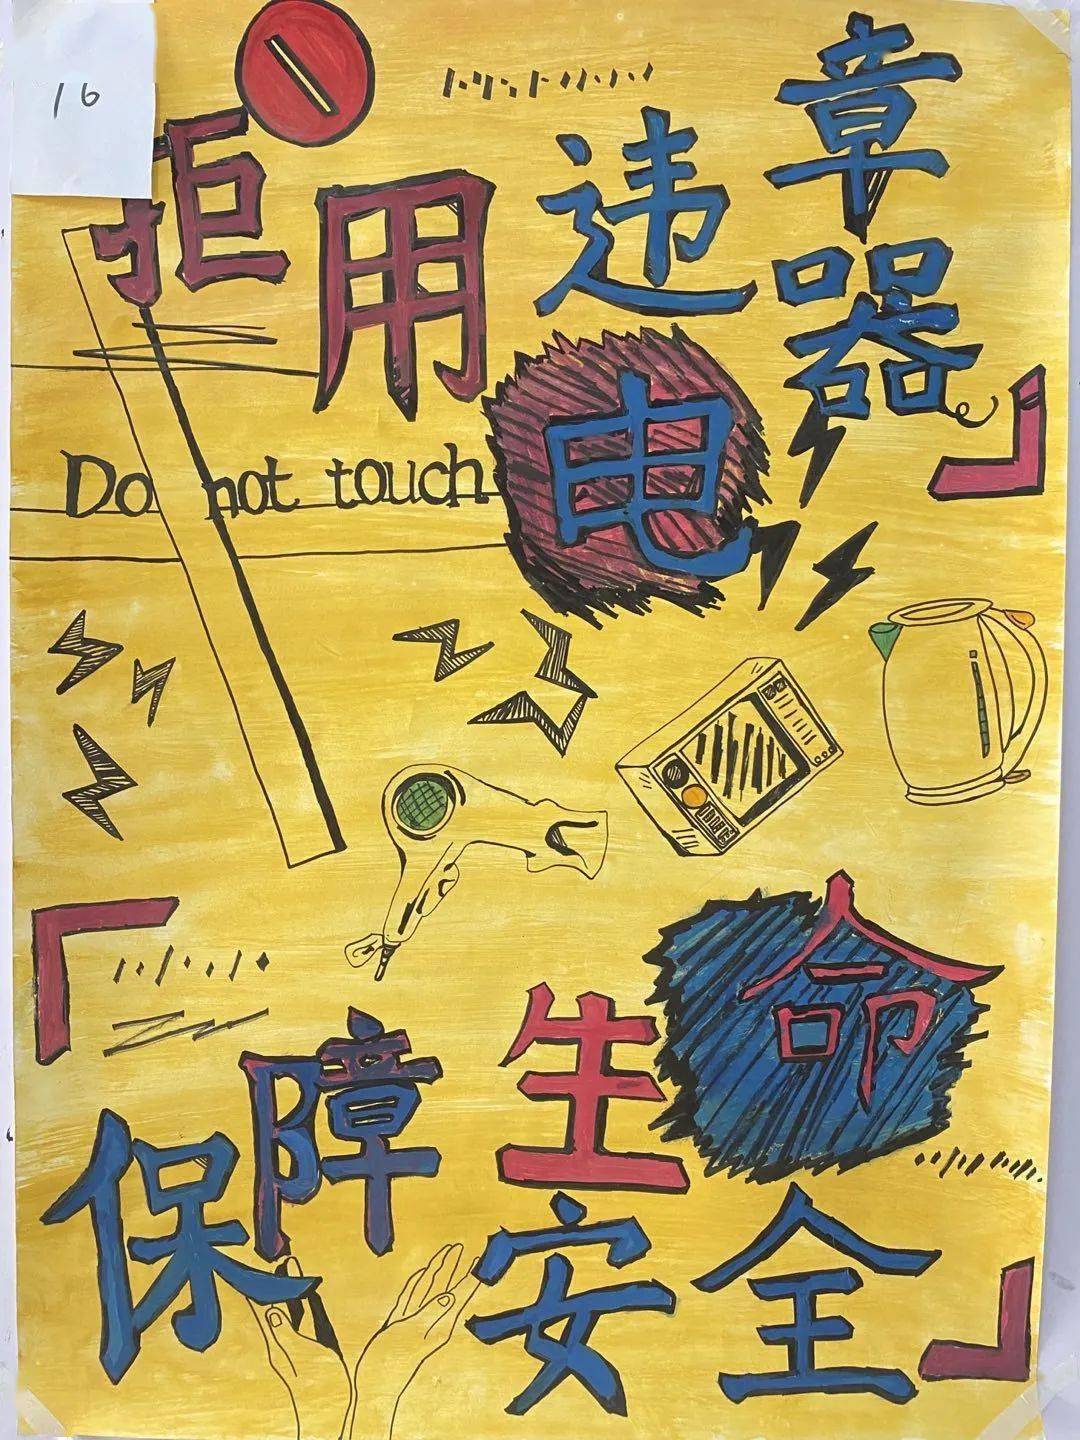 16
拒用违章电器
Do not touch
保障生命安全